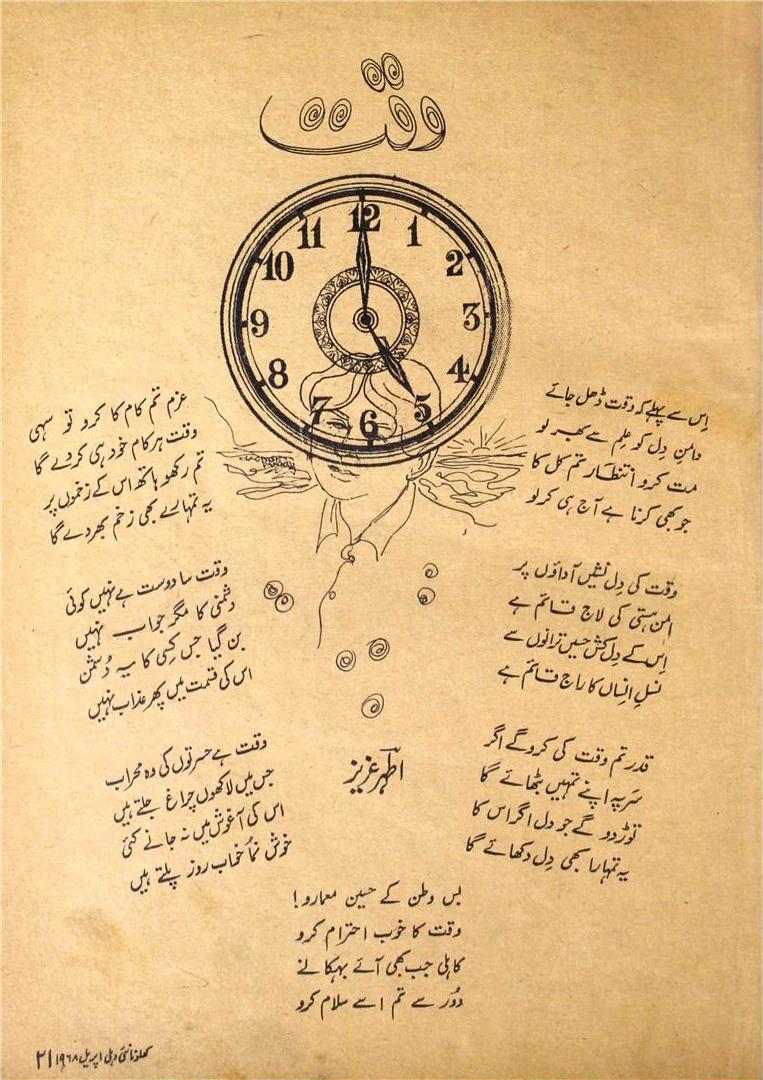 وقت
12
1
2
3
4
5
6
7
8
9
10
11
اِس سے پہلے کہ وقت ڈھل جائے
دامنِ دِل کو عِلم سے بھر لو
مت کرو انتظار تم کل کا
جو بھی کرنا ہے آج ہی کرلو
وقت کی دِل نشیں آداؤں پر
امن ہستی کی لاج قائم ہے
اِس کے دِل کش حسیں ترانوں سے
نسلِ اِنساں کا راج قائم ہے
قدر تم وقت کی کروگے اگر
سر پہ اپنے تمہیں بٹھائے گا
توڑ دو گے جو دل اگر اس کا
یہ تمہارا بھی دِل دکھائے گا
عزم تم کام کا کرو تو سہی
وقت ہر کام خود ہی کر دے گا
تم رکھو ہاتھ اس کے زخموں پر
یہ تمہارے بھی زخم بھر دے گا
وقت سا دوست ہے نہیں کوئی
دشمنی کا مگر جواب نہیں
بن گیا جس کِسی کا یہ دُشمن
اس کی قسمت میں پھر عذاب نہیں
وقت ہے حسرتوں کی وہ محراب
جس میں لاکھوں چراغ جلتے ہیں
اس کی آغوش میں نہ جانے کئی
خوش نُما خواب روز پلتے ہیں
اطہر عزیز
بس وطن کے حسین معمارو!
وقت کا خوب احترام کرو
کاہلی جب بھی آئے بہکانے
دُور سے تم اسے سلام کرو
کھلونا نئی دہلی اپریل ۱۹۶۸ ۲۱